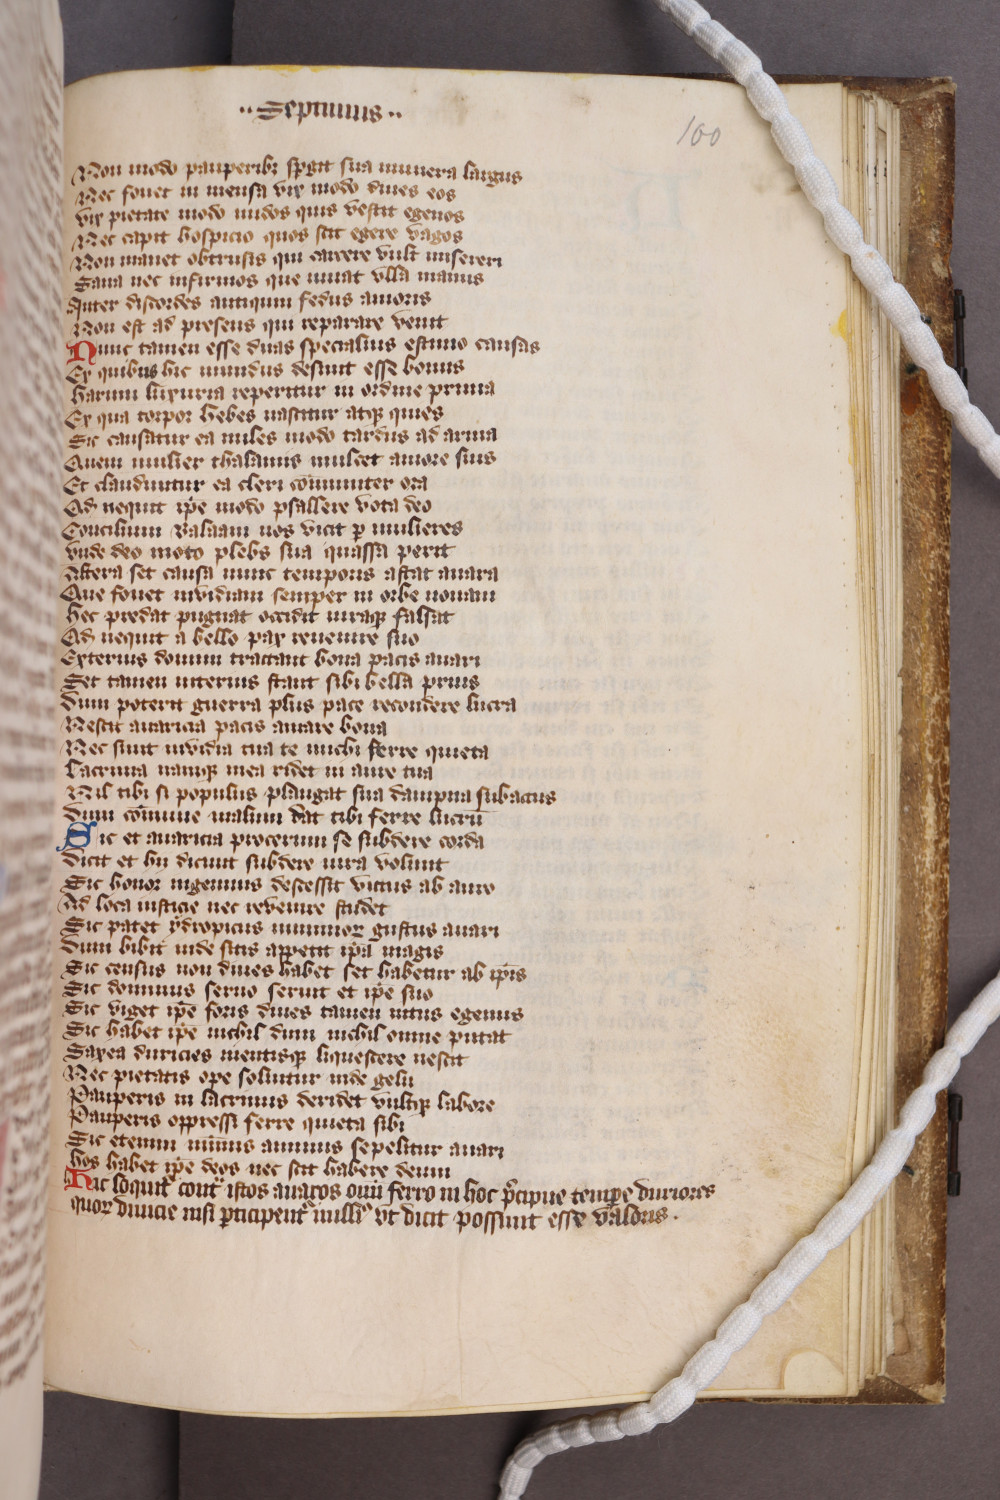 ··Septimus··
100
Non modo pauperibꝫ spgit sua munera largus
Nec fouet in mensa vix modo diues eos
vix pietate modo nudos quis vestit egenos
Nec capit hospicio quos scit egere vagos
Non manet obtrusis qui carcere vult misereri
Sana nec infirmos que iuuat vlla manus
Inter discordes antiquum fedus amoris
Non est ad presens qui reparare venit
Nunc tamen esse duas specialius estimo causas
Ex quibus hic mundus desinit esse bonus
harum luxuria reperitur in ordine prima
Ex qua torpor hebes nascitur atqꝫ quies
Sic causatur ea miles modo tardus ad arma
Quem mulier thalamis mulcet amore suis
Et clauduntur ea cleri cōmuniter ora
Qd nequit ip̄e modo psallere vota deo
Concilium Balaam nos vicit ꝑ mulieres
vnde deo moto plebs sua quassa perit
Altera set causa nunc temporis astat auara
Que fouet inuidiam semper in orbe nouam
hec predat pugnat occidit iuraqꝫ falsat
Qd nequit a bello pax reuenire suo
Exterius domini tractant bona pacis auari
Set tamen interius stant sibi bella prius
dum poterit guerra plus pace recondere lucra
Nescit auaricia pacis amare bona
Nec sinit inuidia tua te michi ferre quieta
Lacrima namqꝫ mea ridet in aure tua
Nil tibi si populus plangat sua dampna subactus
dum cōmune malum dat tibi ferre lucrū
Sic et auaricia procerum se subdere corda
dicit et hii dicunt subdere iura volunt
Sic honor ingenuus descessit victus ab auro
Ad loca iusticie nec reuenire studet
Sic patet ydropicus nummoꝝ gustus auari
dum bibit inde sitis appetit ip̄a magis
Sic census non diues habet set habetur ab ip̄is
Sic dominus seruo seruit et ip̄e suo
Sic viget ip̄e foris diues tamen intus egenus
Sic habet ip̄e nichil dum nichil omne putat
Saxea duricies mentisqꝫ liquescere nescit
Nec pietatis ope soluitur inde gelu
Pauperis in lacrimis deridet vultqꝫ labore
Pauperis oppressi ferre quieta sibi
Sic etenim nimis animus sepelitur auari
hos habet ip̄e deos nec scit habere deum
Hic loquit' cont' istos auaros qui ferro in hoc p̄cipue tempe duriores
quoꝝ diuicie nisi ꝑticipent' nulli' vt dicit possunt esse valoris.